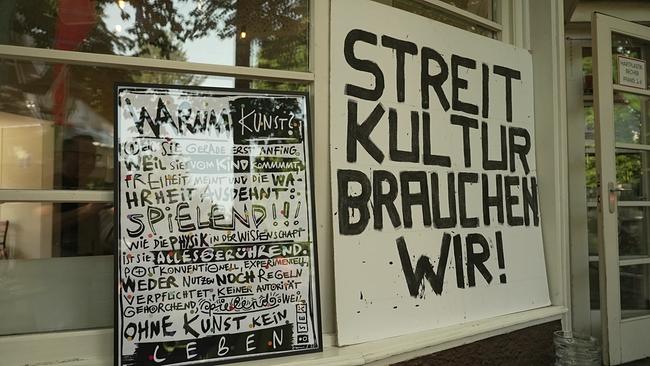 WARUM KUNST?
WEIL SIE GERADE ERST ANFING.
WEIL SIE VOM KIND KOMMMT,
FREIHEIT MEINT UND DIE WA-
HRHEIT AUSDEHNT:
SPIELEND!!!
WIE DIE PHYSIK IN DER WISSENSCHAFT
IST SIE ALLES BERÜHREND.
POSTKONVENTIONELL, EXPERIMENTELL,
WEDER NUTZEN NOCH REGELN
VERPFLICHTET, KEINER AUTORITÄT
GEHORCHEND, spielend WEIL
OHNE KUNST KEIN
LEBEN
STREIT
KULTUR
BRAUCHEN
WIR!
HARTPLASTIK
BECHER
PFAND